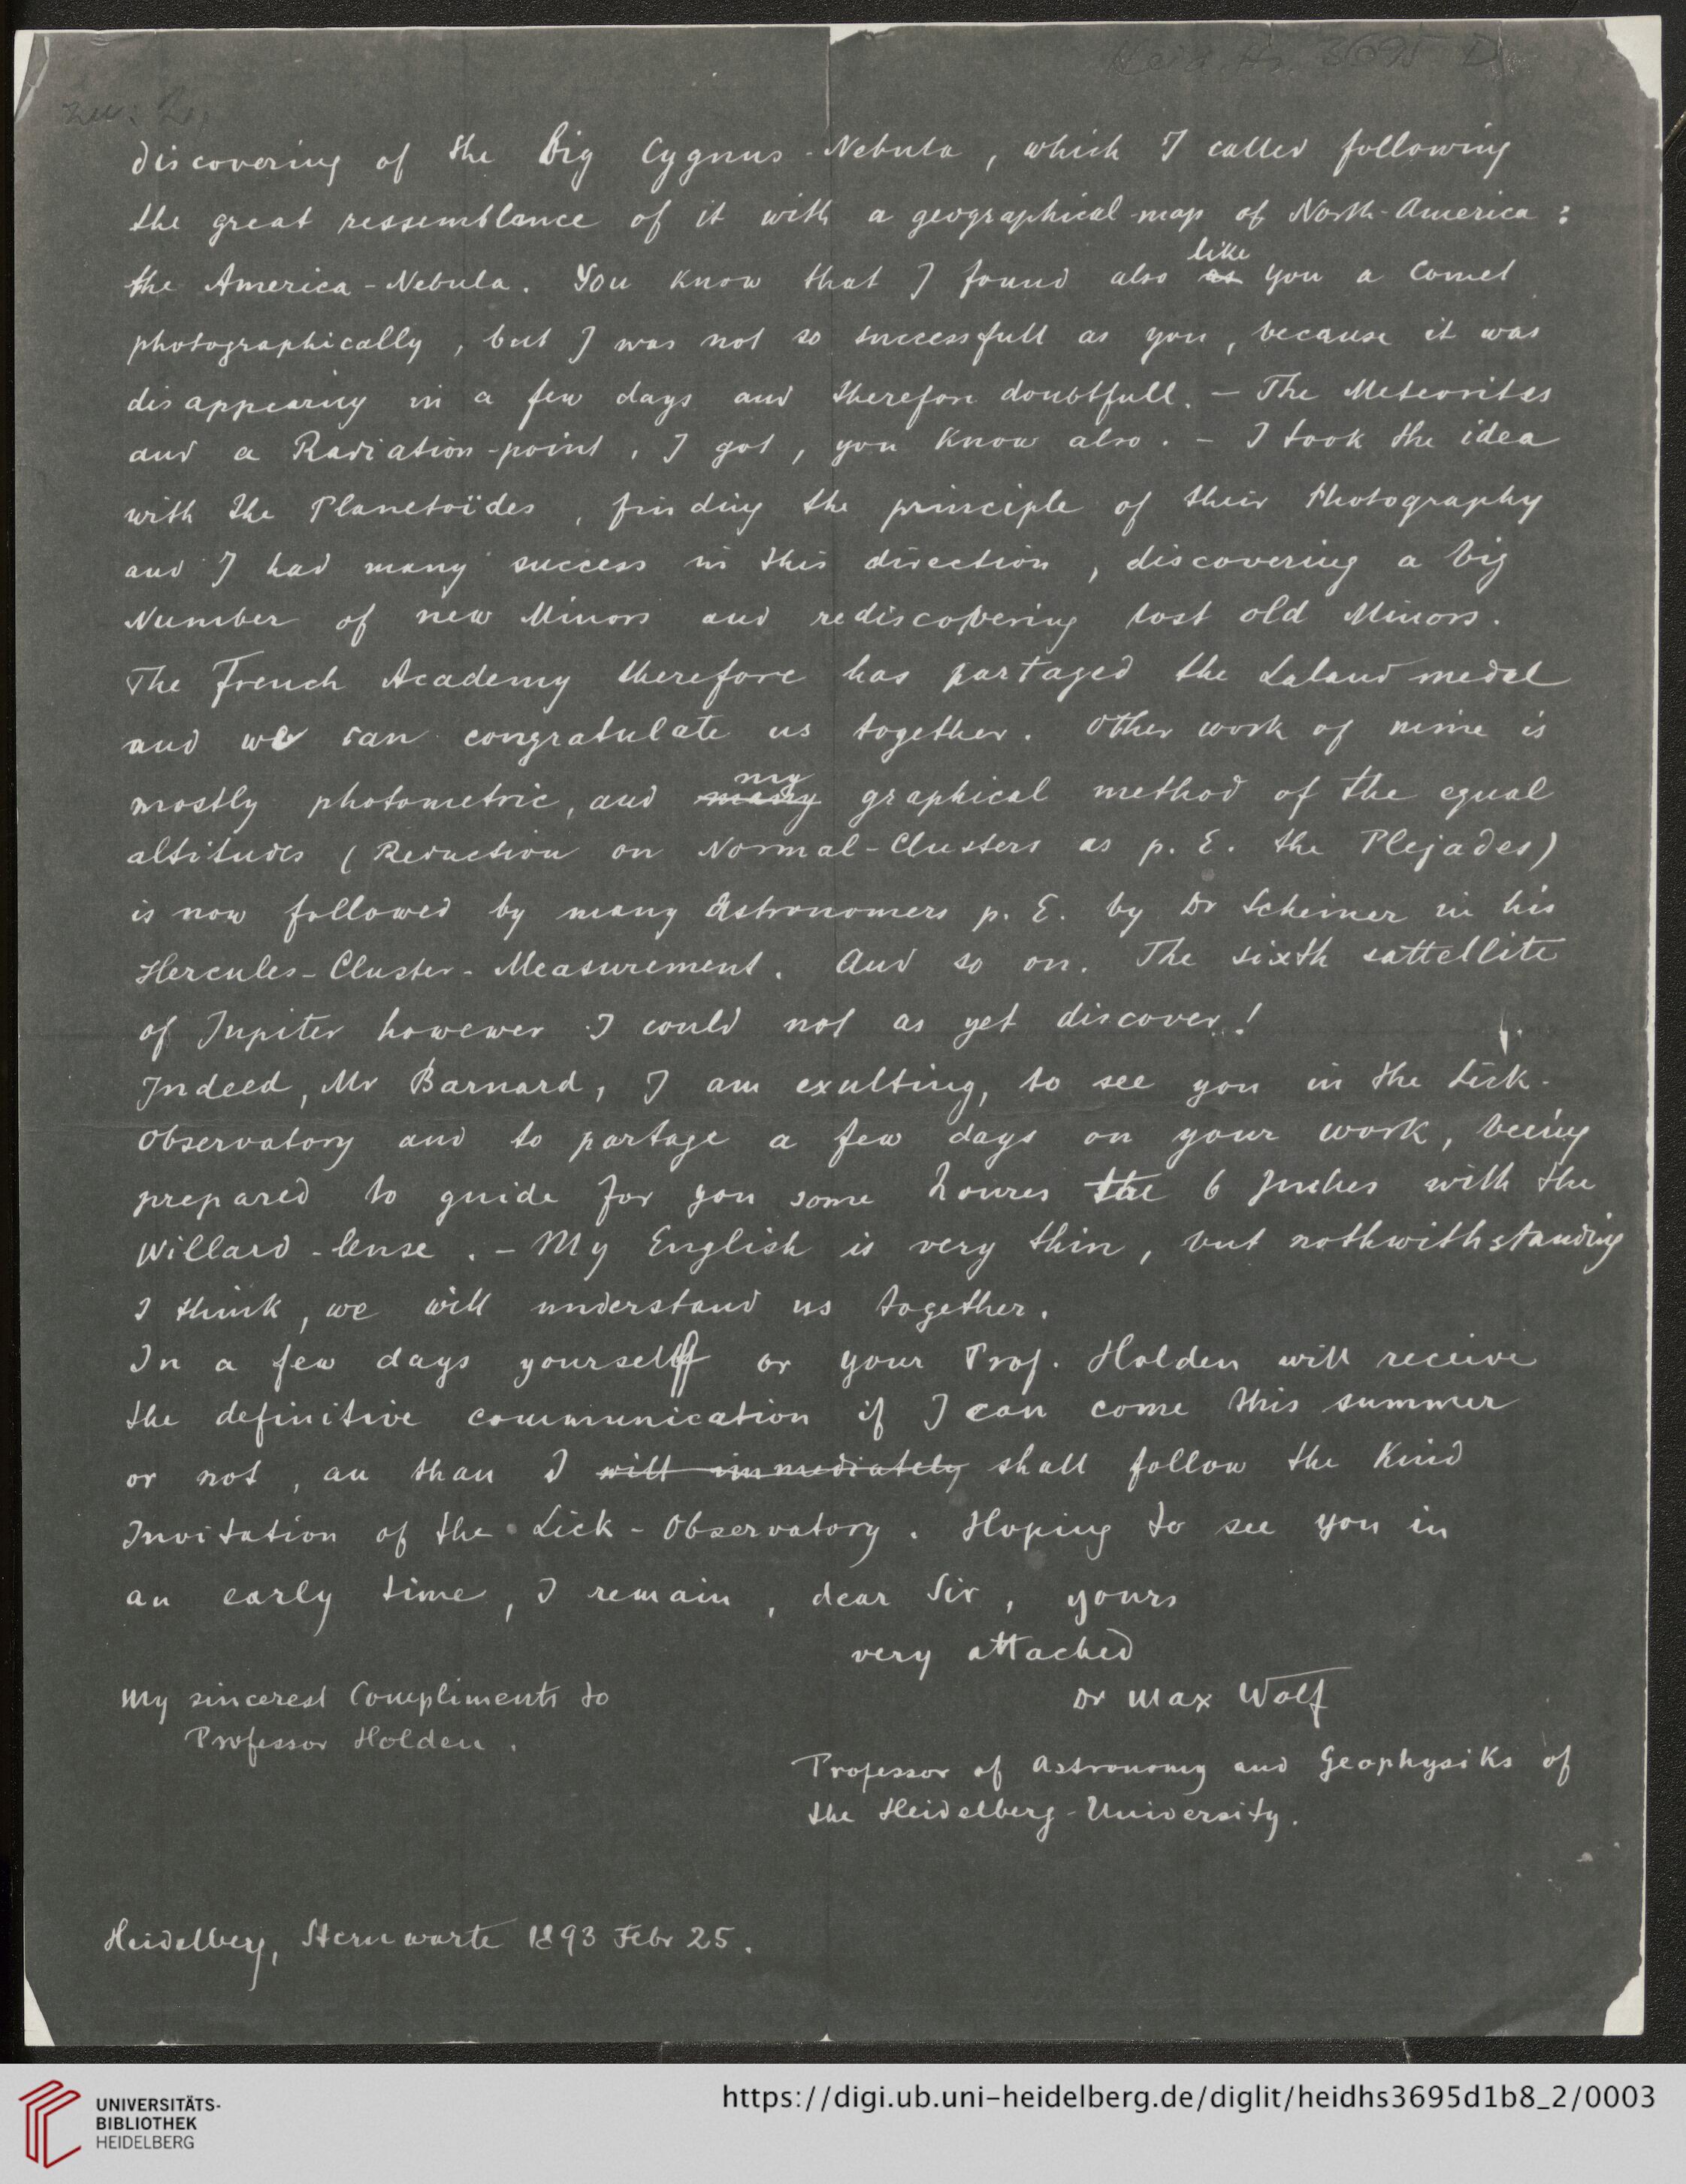 Heid. Hs. 3695 D
zu: 2,
discovering of the big Cygnus-Nebula, which I called following
the great ressemblance of it with a geographical map of North-America:
the America-Nebula. You know that I found also as like you a Comet
photographically, but I was not so successfull as you, because it was
disappearing in a few days and therefore doubtfull. – The Meteorites
and a Radiation-point, I got, you know also. – I took the idea
with the Planetoïdes, finding the principle of their Photography
and I had many success in this direction, discovering a big
Number of new Minors and rediscovering lost old Minors.
The French Academy therefore has partaged the Laland medal
and we can congratulate us together. Other work of mine is
mostly photometric, and many my graphical method of the equal
altitudes (Reduction on Normal-Clusters as p. E. the Plejades)
is now followed by many Astronomers p. E. by Dr Scheiner in his
Hercules-Cluster-Measurement. And so on. The sixth sattellite
of Jupiter howewer I could not as yet discover!
Indeed, Mr Barnard, I am exulting, to see you in the Lick-
Observatory and to partage a few days on your work, beeing
prepared to guide for you some houres the 6 Inches with the
Willard-lense. – My English is very thin, but nothwithstanding
I think, we will understand us together.
In a few days yourself or your Prof. Holden will receive
the definitive communication if I can come this summer
or not, an than I will immediately shall follow the Kind
Invitation of the Lick-Observatory. Hoping to see you in
an early time, I remain, dear Sir, yours
very attached
My sincerest Compliments to
Professor Holden.
Dr Max Wolf
Professor of Astronomy and Geophysiks of
the Heidelberg-University.
Heidelberg, Sternwarte 1893 Febr 25.
UNIVERSITÄTS-
BIBLIOTHEK
HEIDELBERG
https://digi.ub.uni-heidelberg.de/diglit/heidhs3695d1b8_2/0003